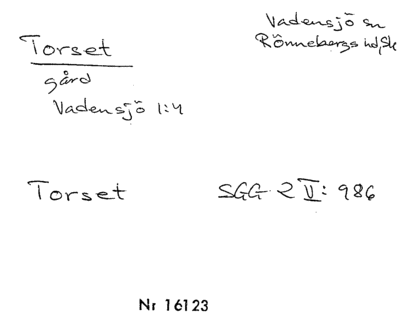 Torset
gård
Vadensjö 1:4
Vadensjö sn
Rönnebergs hd, Sk
Torset
SGG 2 V: 986
Nr 16123